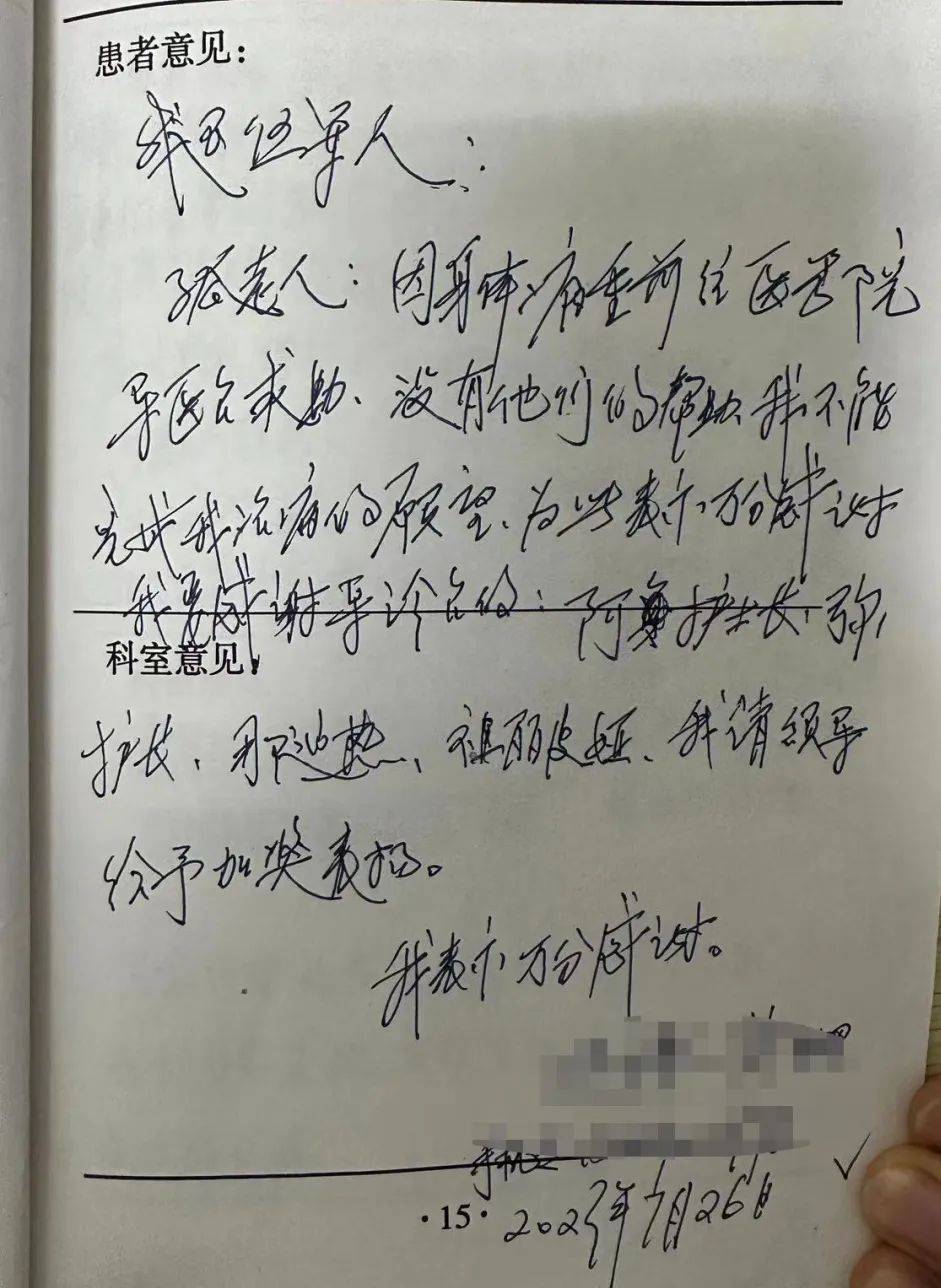 患者意见：
我是伍军人：
孤老人：因身体病重前往医学院
导医台求助、没有他们的帮助、我不能
完成我治病的愿望、为此表示万分感谢
我要感谢导诊台的：阿 护士长，
科室意见：
护长、我请领导
给予加奖表扬。
我表示万分感谢。
手机
·15· 202 年 月26日